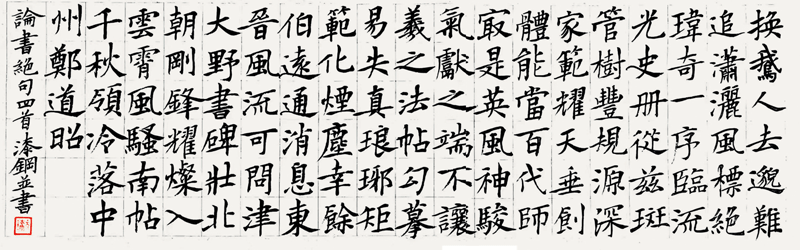 換鵞人去邈難
追瀟灑風標絕
瑋奇一序臨流
光史册從茲斑
管樹豐規源深
家範耀天垂創
體能當百代師
㝡是英風神駿
氣獻之端不讓
羲之法帖勾摹
易失真琅琊矩
範化煙塵幸餘
伯遠通消息東
晉風流可問津
大野書碑壯北
朝剛鋒耀燦入
雲霄風騷南帖
千秋領冷落中
州鄭道昭
論書絕句四首漆鋼並書